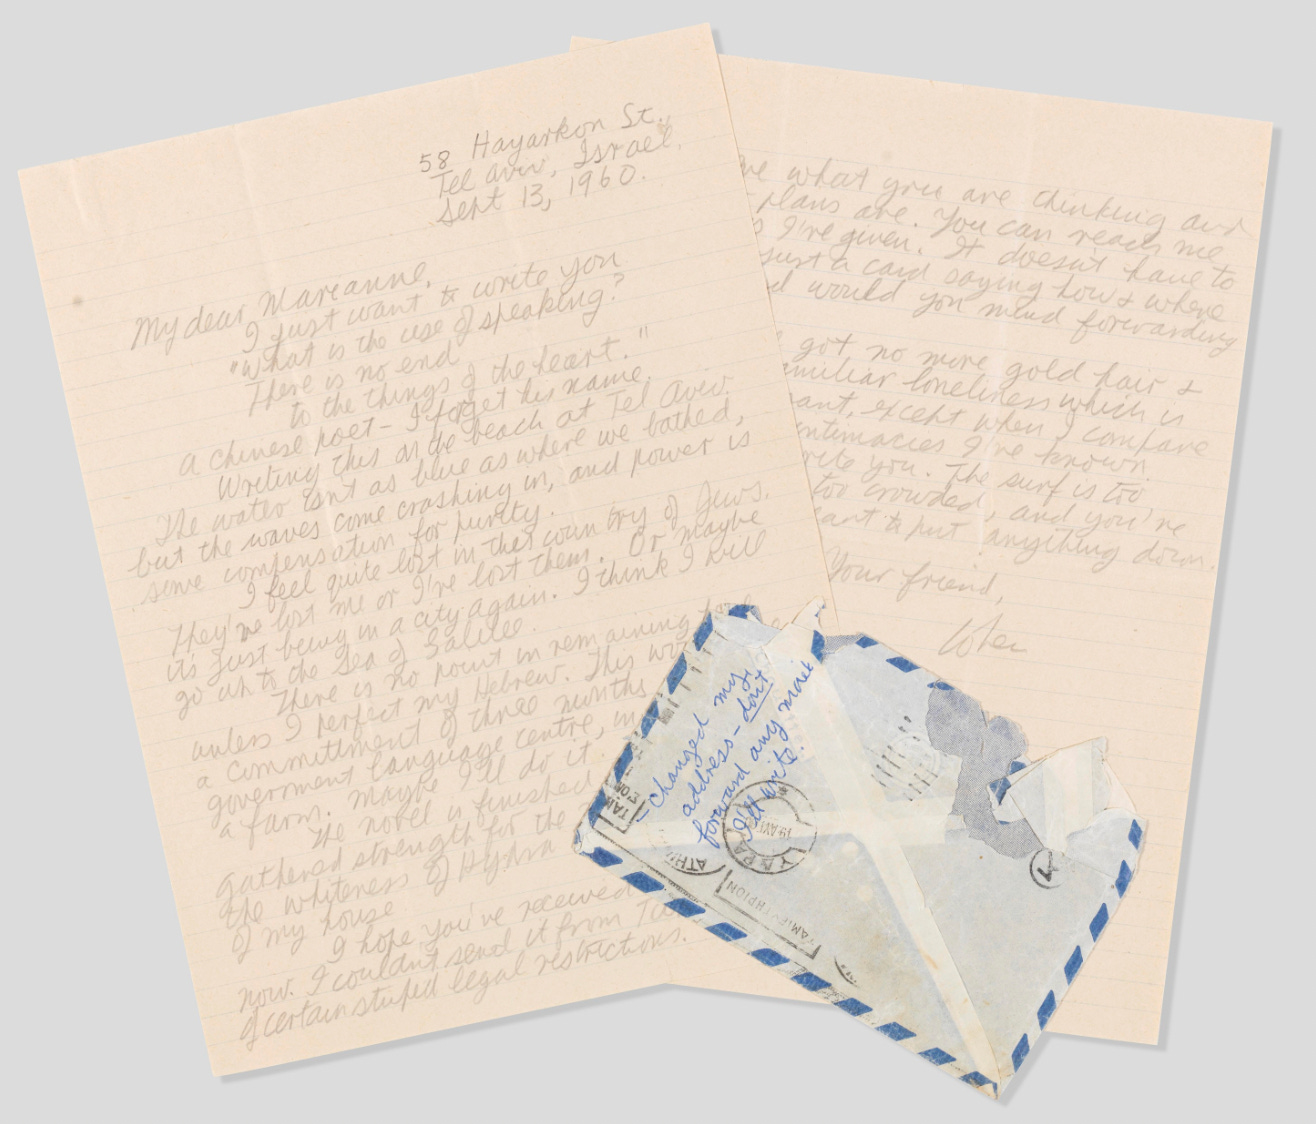 58 Hayarkon St.,
Tel Aviv, Israel.
Sept 13, 1960.
My dear Marianne,
I just want to write you
"What is the use of speaking?
There is no end
to the things of the heart."
A chinese poet - I forget his name.
Writing this on the beach at Tel Aviv.
The water isn't as blue as where we bathed,
but the waves come crashing in, and power is
some compensation for purity.
I feel quite lost in the country of Jews.
They've lost me or I've lost them. Or maybe
it's just being in a city again. I think I will
go up to the Sea of Galilee.
There is no point in remaining here
unless I perfect my Hebrew. This
a committment of three months
government language centre, in
a farm. Maybe I'll do it
The novel is finished
gathered strength for the
the whiteness of Hydra
of my house
I hope you've received
now. I couldn't send it from
of certain stupid legal restrictions.
what you are thinking and
plans are. You can reach me
I've given. It doesn't have to
just a card saying how & where
would you mind forwarding
got no more gold hair &
loneliness which is
except when I compare
intimacies I've known
write you. The surf is too
too crowded, and you're
to put anything down.
Your friend,
Cohen
Changed my
address - don't
forward any more
I'll write.